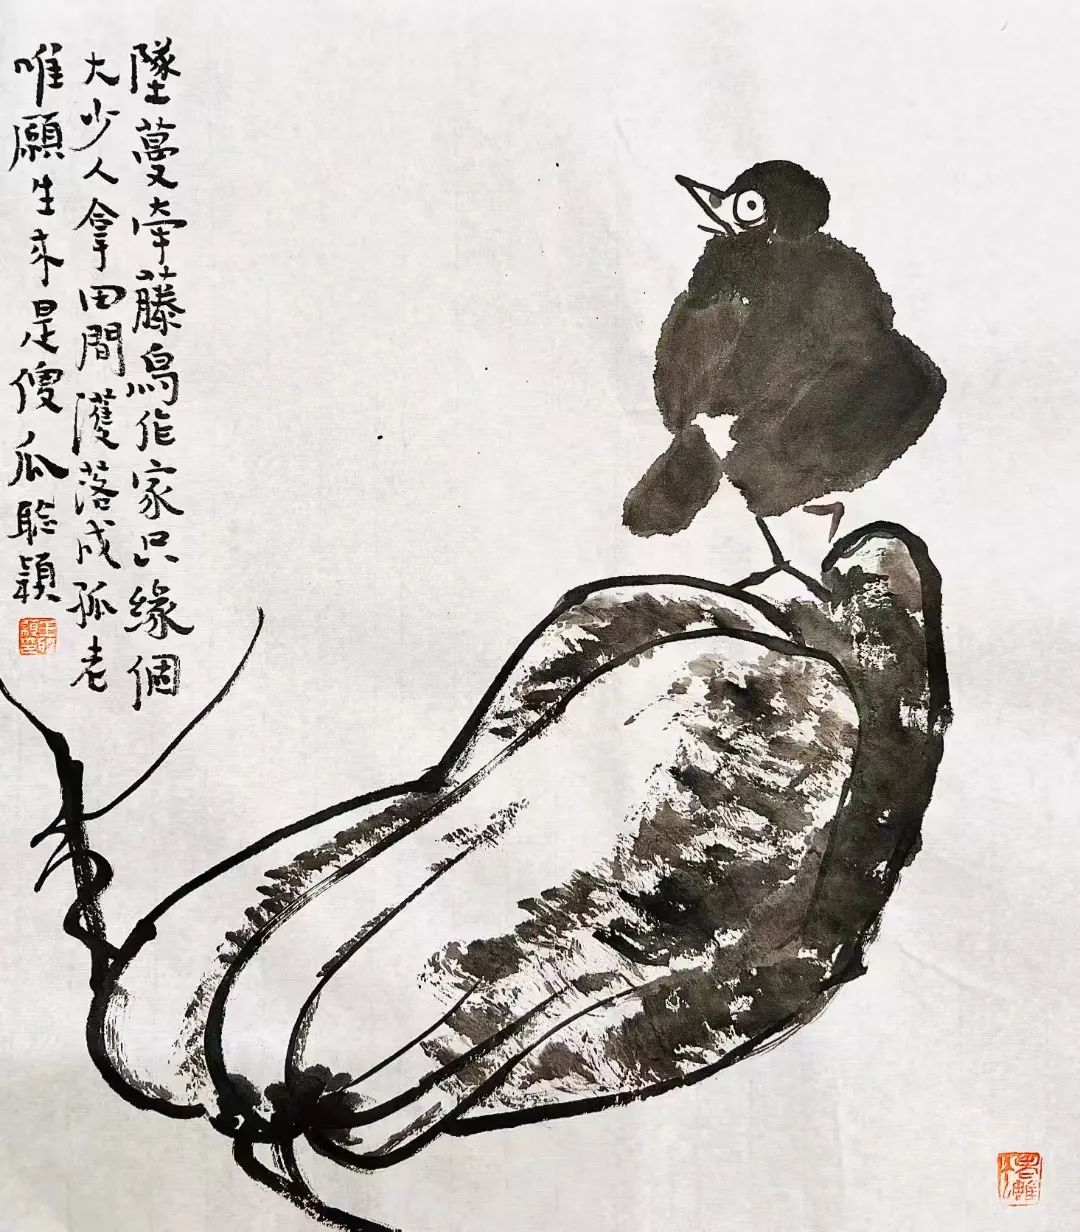 墜蔓牽藤鳥作家只緣個
大少人拿田間濩落成孤老
唯願生來是傻瓜聪穎